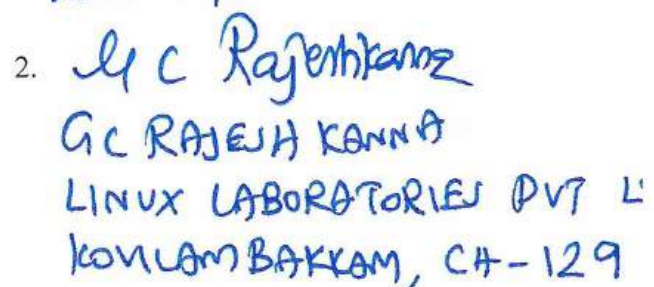 2. G C Rajeshkanna
GC RAJESH KANNA
LINUX LABORATORIES PVT L
KOVILAMBAKKAM, CH-129